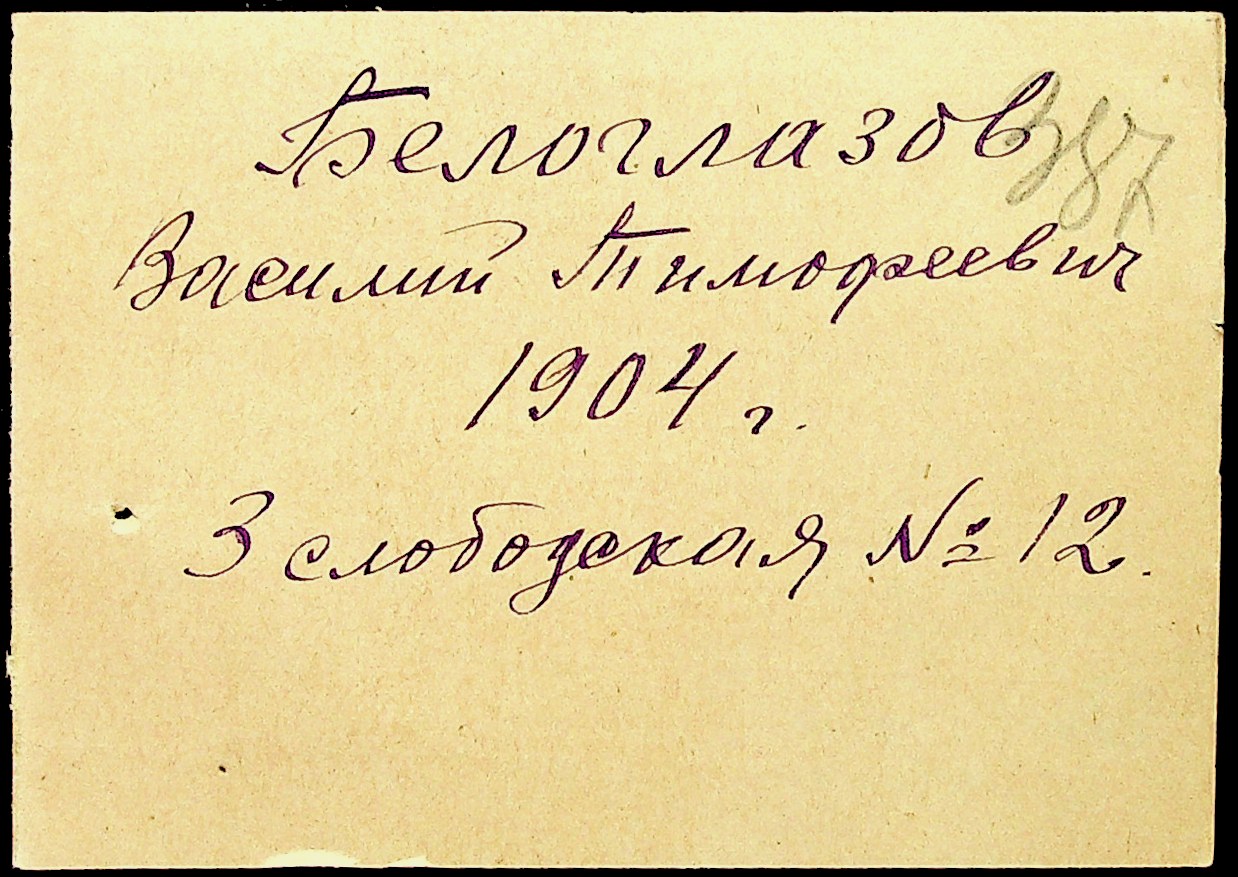 Белоглазов
387
Василий Тимофеевич
1904 г.
3 слободская № 12.